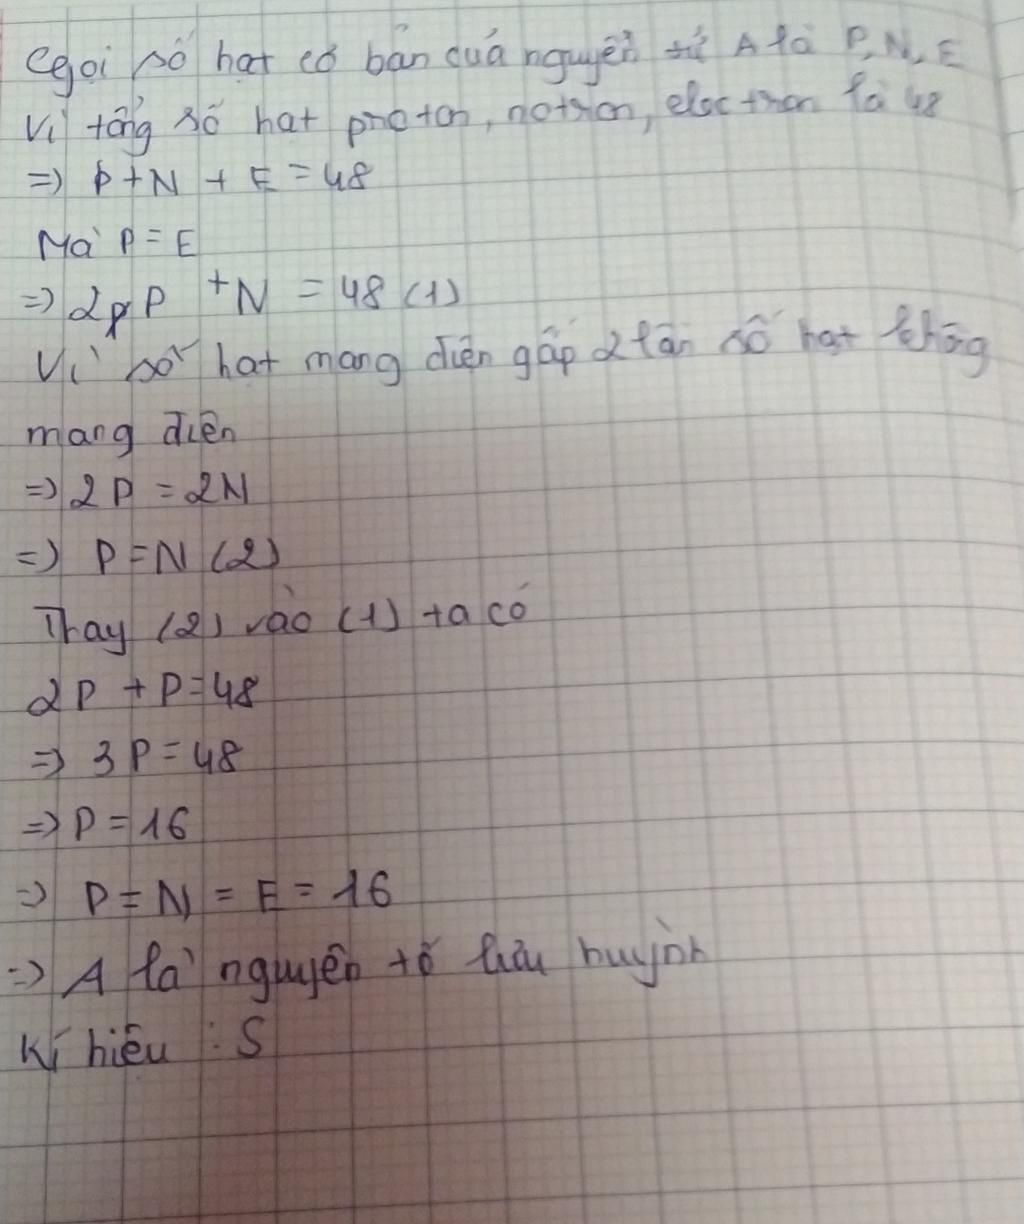 Gọi số hạt cơ bản của nguyên tử A là P, N, E
Vì tổng số hạt proton, nơtron, electron là 48
=> P + N + E = 48
Mà P = E
=> 2P + N = 48 (1)
Vì số hạt mang điện gấp 2 lần số hạt không
mang điện
=> 2P = 2N
=> P = N (2)
Thay (2) vào (1) ta có
2P + P = 48
=> 3P = 48
=> P = 16
=> P = N = E = 16
=> A là nguyên tố lưu huỳnh
Kí hiệu : S